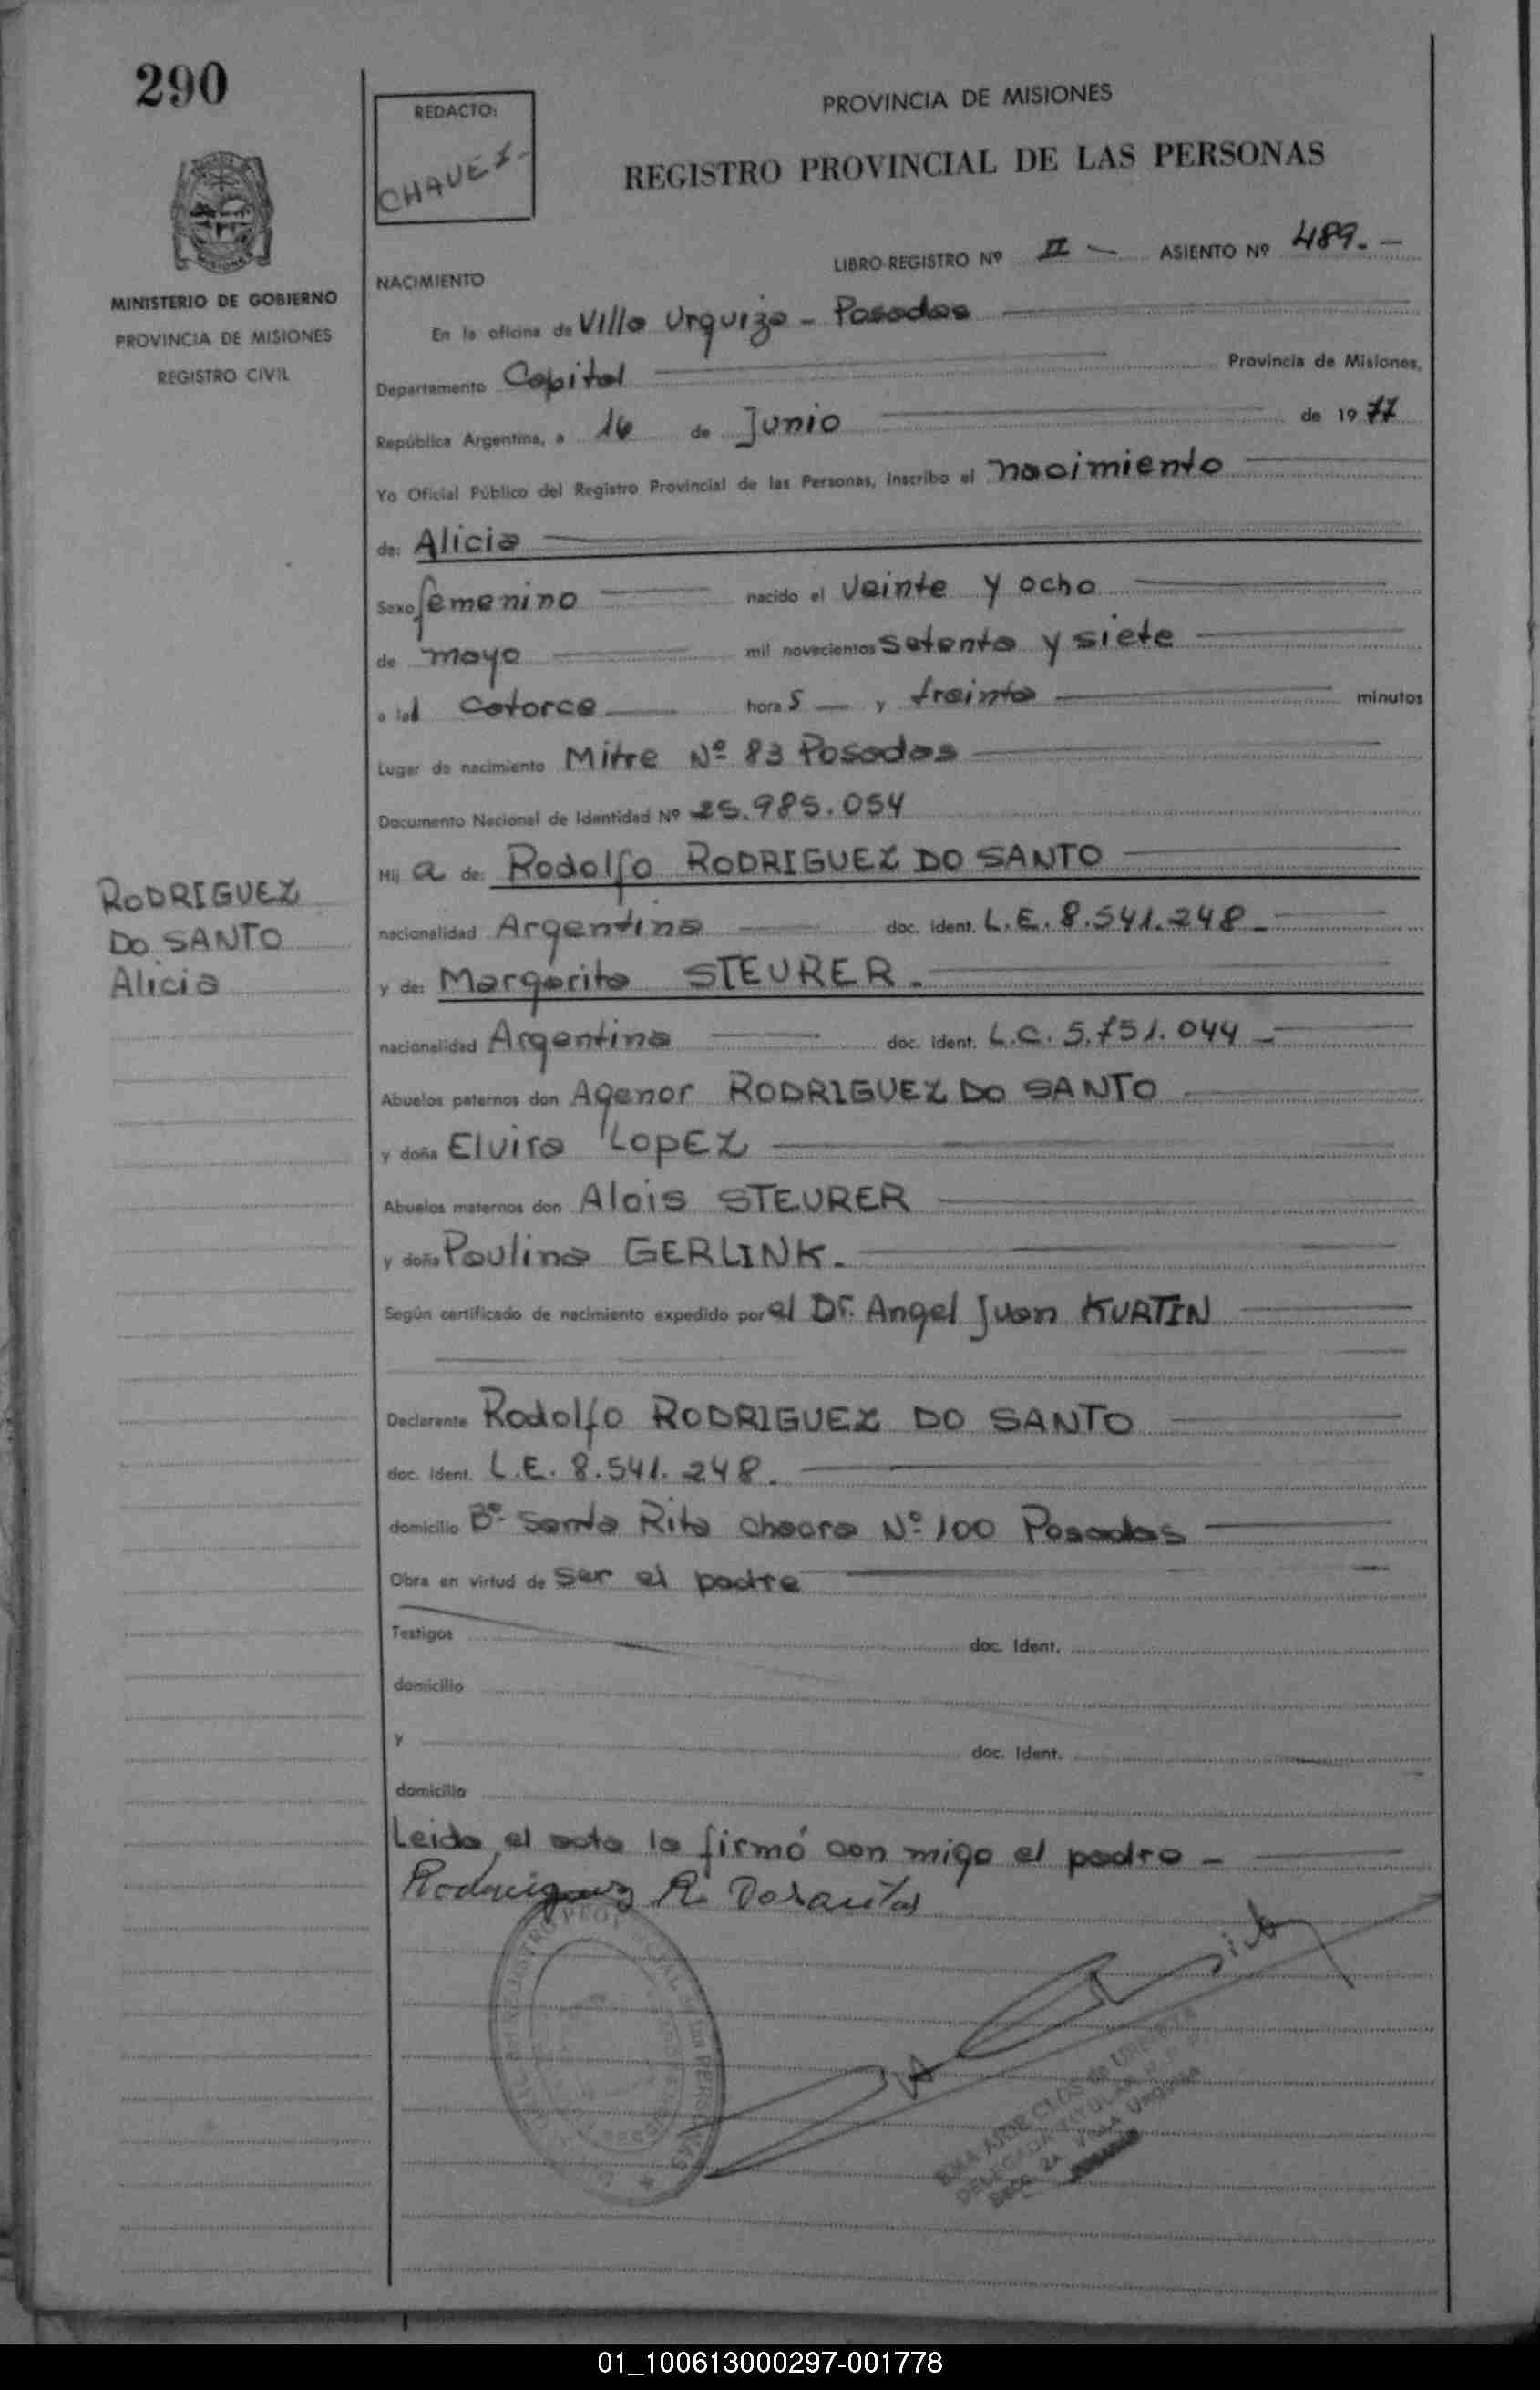 290
REDACTO:
CHAVEZ.-
PROVINCIA DE MISIONES
REGISTRO PROVINCIAL DE LAS PERSONAS
MINISTERIO DE GOBIERNO
PROVINCIA DE MISIONES
REGISTRO CIVIL
LIBRO-REGISTRO Nº II - ASIENTO Nº 489.-
NACIMIENTO
En la oficina de Villa Urquiza - Posadas
Departamento Capital Provincia de Misiones,
República Argentina, a 16 de Junio de 1977
Yo Oficial Público del Registro Provincial de las Personas, inscribo el nacimiento
de: Alicia
Sexo femenino nacido el veinte y ocho
de mayo mil novecientos setenta y siete
a las catorce horas y treinta minutos
Lugar de nacimiento Mitre Nº 83 Posadas
Documento Nacional de Identidad Nº 25.985.054
Hij a de: Rodolfo RODRIGUEZ DO SANTO
nacionalidad Argentina doc. ident. L.E. 8.541.248.-
y de: Margarita STEURER.
nacionalidad Argentina doc. ident. L.C. 5.751.044 -
Abuelos paternos don Agenor RODRIGUEZ DO SANTO
y doña Elvira LOPEZ
Abuelos maternos don Alois STEURER
y doña Paulina GERLINK.
Según certificado de nacimiento expedido por el Dr. Angel Juan KURTIN
Declarante Rodolfo RODRIGUEZ DO SANTO
doc. ident. L.E. 8.541.248.
domicilio Bº Santa Rita chacra Nº 100 Posadas
Obra en virtud de ser el padre
Testigos doc. Ident.
domicilio
y doc. Ident.
domicilio
Leida el acta la firmó con migo el padre -
Rodriguez R. Dosantos
RODRIGUEZ
DO SANTO
Alicia
01_100613000297-001778